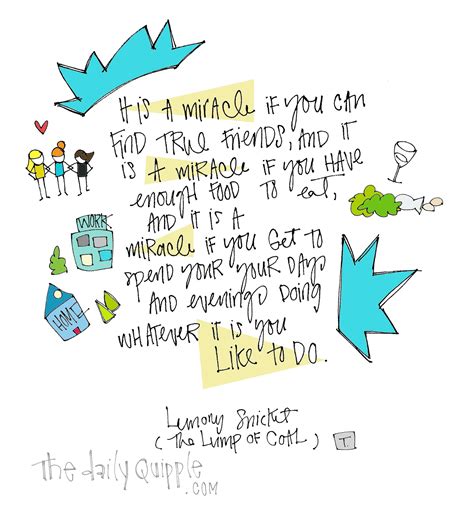 It is a miracle if you can
find true friends, and it
is a miracle if you have
enough food to eat,
and it is a
miracle if you get to
spend your your days
and evenings doing
whatever it is you
like to do.
WORK
HOME
Lemony Snicket
(The Lump of Coal) T.
The daily Quipple
.com